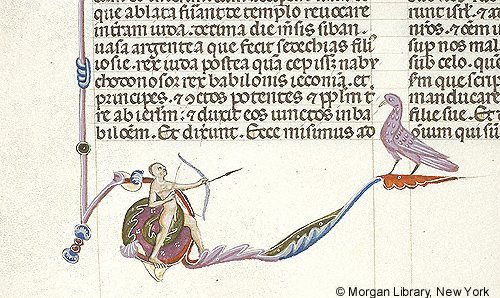 que ablata fuerant de templo reuocare
in terram iuda. decima die mensis siban.
uasa argentea que fecit sedechias fili
iosie. rex iuda postea qua cepisset naby
chodonosor rex babilonis ieconia. et
principes. et cunctos potentes. et pplm tr
re ab ierlm. et duxit eos uinctos in ba
bilonem. Et dixerunt. Ecce misimus ad
runt
nros. et
sup nos mal
sub celo. que
sm que script
manducare
filie sue. Et
ouium qui
© Morgan Library, New York